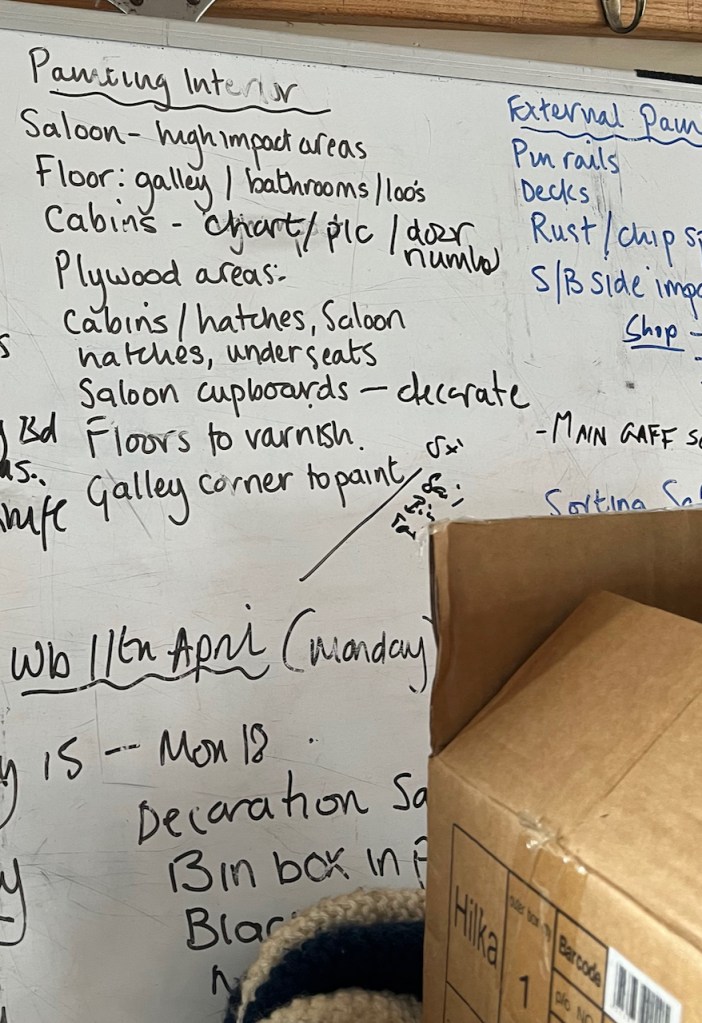 Painting Interior
Saloon - high impact areas
Floor: galley / bathrooms / loo's
Cabins - chart / pic / door
number
Plywood areas:-
Cabins / hatches, Saloon
hatches, underseats
Saloon cupboards - decorate
Bd Floors to varnish.
Galley corner to paint
External Pain
Pin rails
Decks
Rust / chip s
S/B side impa
Shop -
- MAIN GAFF
Sorting Sa
Wb 11th April (Monday)
15 - Mon 18
Decoration Sa
Bin box in
Blac
Hilka
1
Barcode